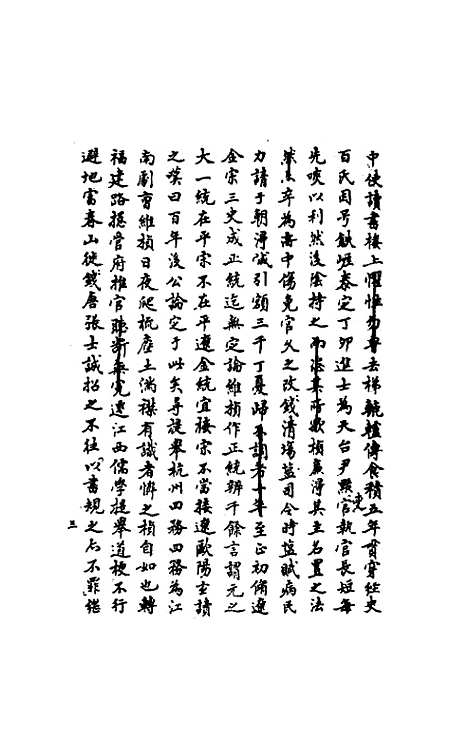 中使讀書樓上懼惰□□去梯轆轤傳食積五年貫穿經史
百氏因号鉄崖泰定丁卯進士為天台尹黠吏官執官長短每
先啖以利然後陰持之而□其所欲楨廉得其主名置之法
然卒為毒中傷免官久之改錢清場鹽司令時鹽賦病民
力請于朝淂减引額三千丁憂歸不調者十年至正初脩遼
金宋三史成正統迄無定論維楨作正統辨千餘言謂元之
大一統在平宋不在平遼金統宜接宋不當接遼歐陽玄讀
之嘆曰百年後公論定于此矣尋提舉杭州四務四務為江
南劇曹維楨日夜爬梳塵土滿襟有識者憐之楨自如也轉
福建路總管府推官踈断無冤遷江西儒學提舉道梗不行
避地富春山徙錢唐張士誠招之不往以書規之亦不罪繼
三